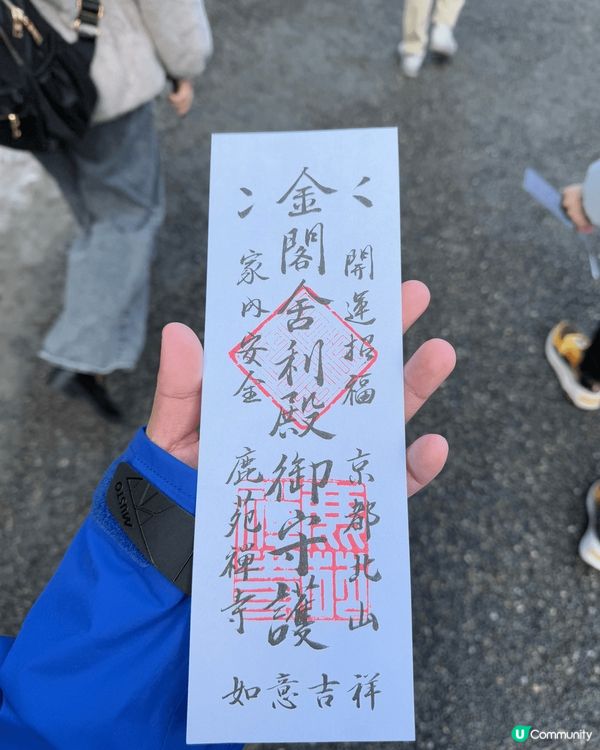 開運招福
京都北山
金閣舎利殿御守護
家内安全
鹿苑禅寺
如意吉祥
MUSTO
U Community